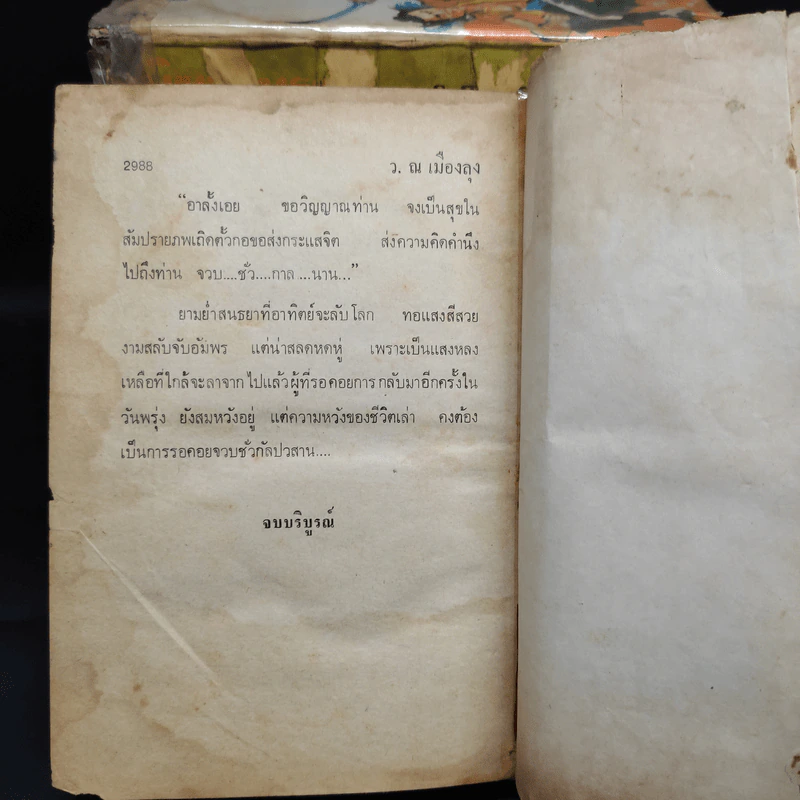 2988 ว. ณ เมืองลุง
“อาลั้งเอย ขอวิญญาณท่าน จงเป็นสุขใน
สัมปรายภพเถิดตั้วกอขอส่งกระแสจิต ส่งความคิดคำนึง
ไปถึงท่าน จวบ....ชั่ว....กาล ...นาน...”
ยามย่ำสนธยาที่อาทิตย์จะลับโลก ทอแสงสีสวย
งามสลับจับอัมพร แต่น่าสลดหดหู่ เพราะเป็นแสงหลง
เหลือที่ใกล้จะลาจากไปแล้วผู้ที่รอคอยการกลับมาอีกครั้งใน
วันพรุ่ง ยังสมหวังอยู่ แต่ความหวังของชีวิตเล่า คงต้อง
เป็นการรอคอยจวบชั่วกัลปวสาน....
จบบริบูรณ์